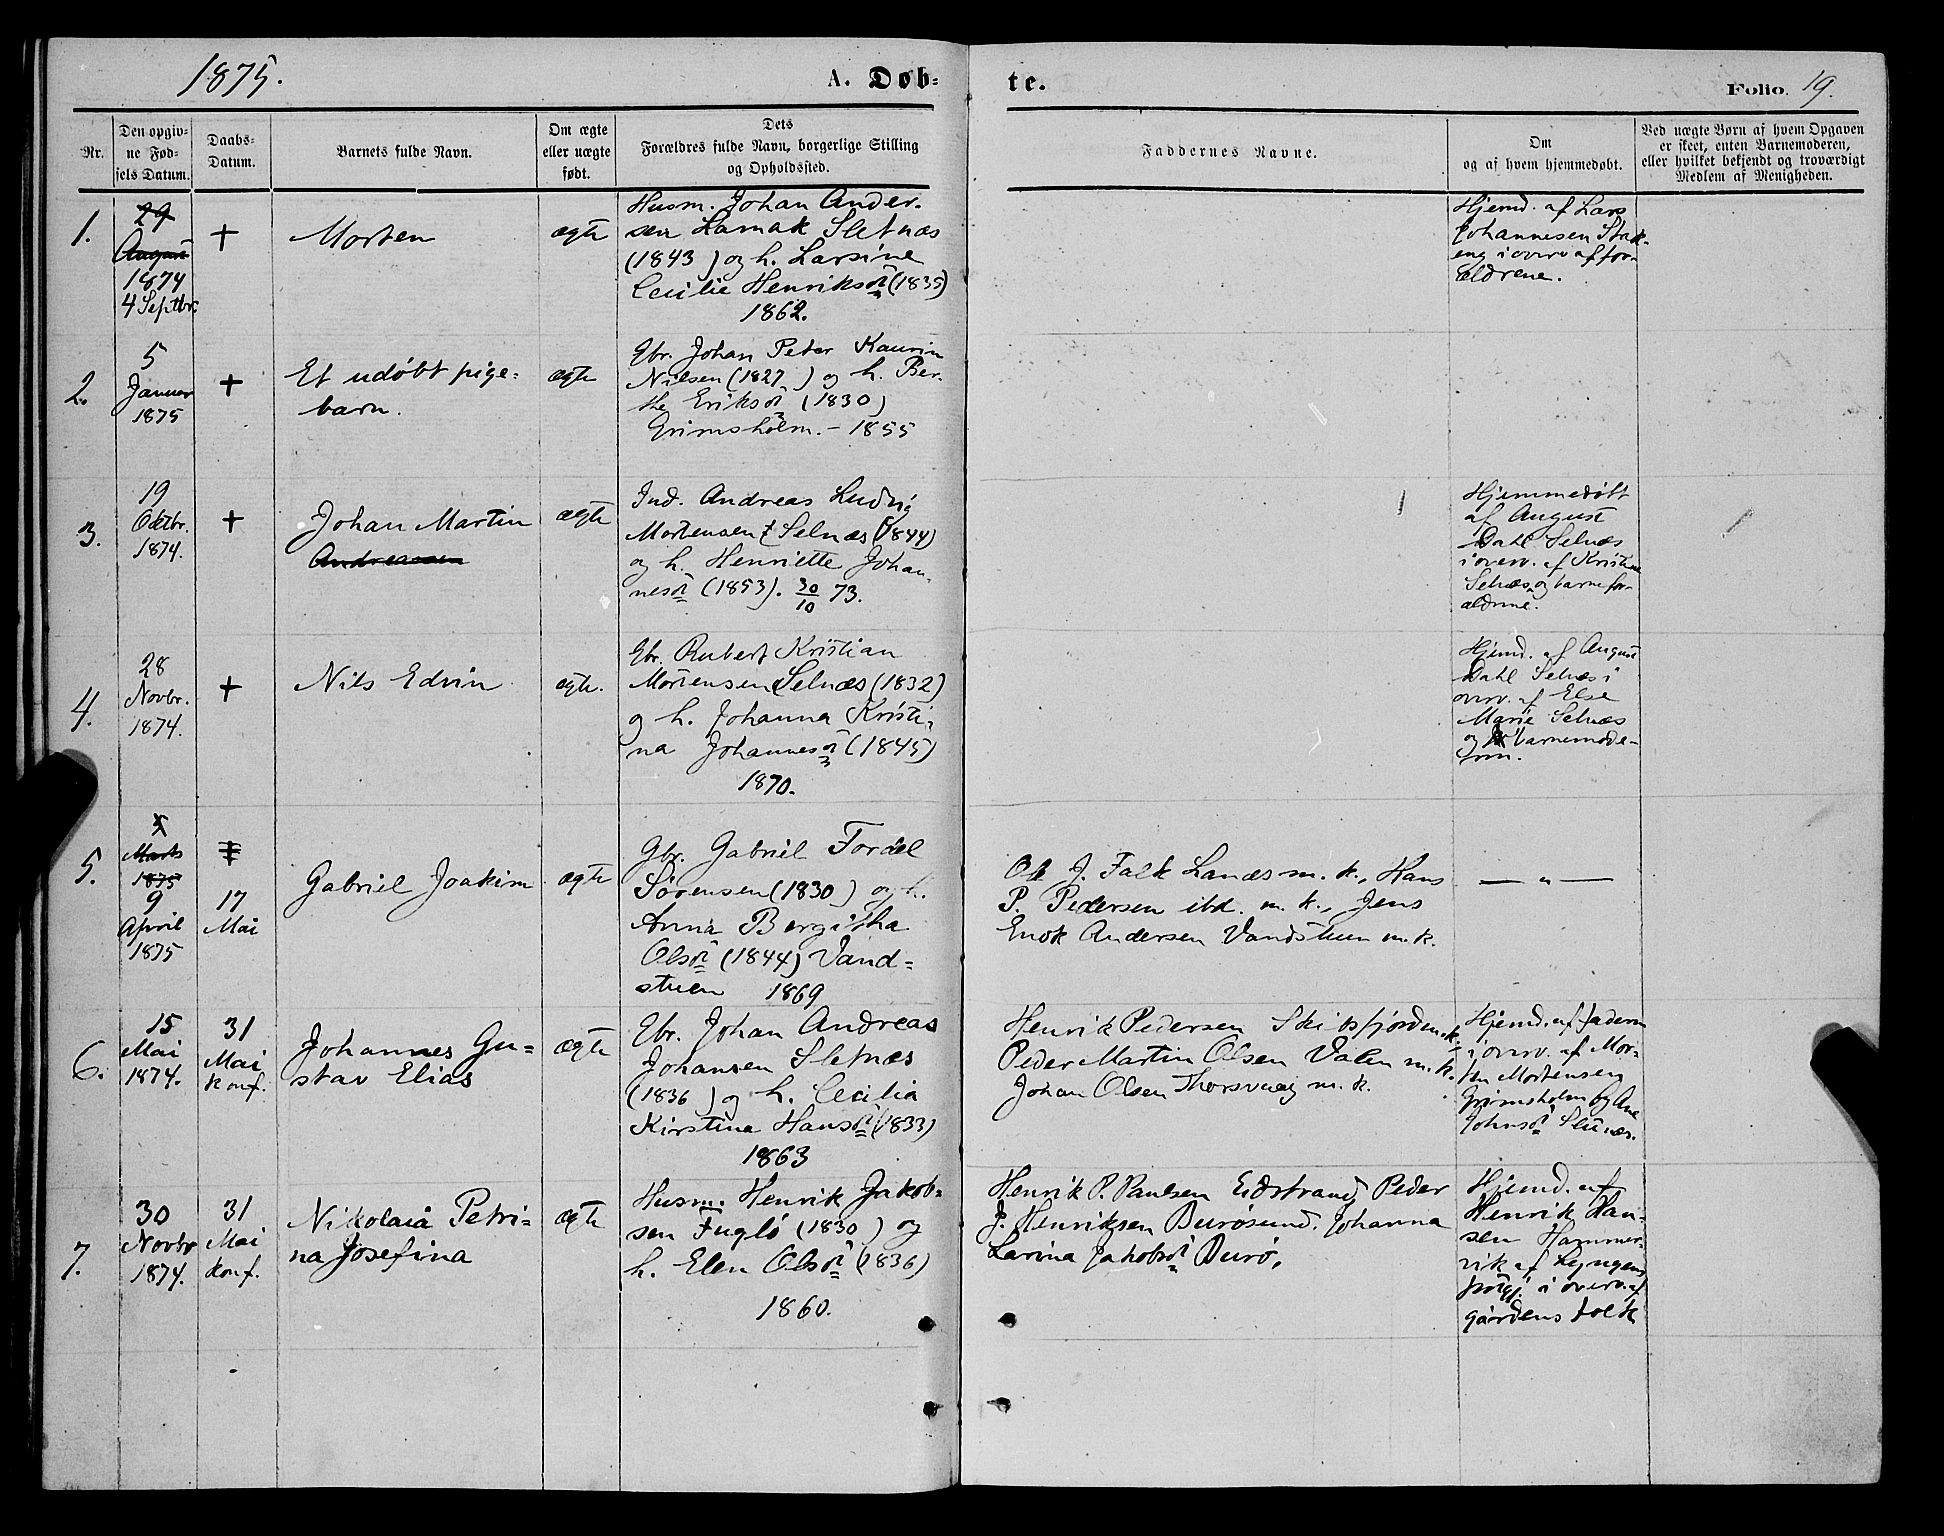 1875.
A. Døb-
te.
Folio. 19.
Nr.
Den opgiv-
ne Fød-
sels Datum.
Daabs-
Datum.
Barnets fulde Navn.
Om ægte
eller uægte
født.
Dets
Forældres fulde Navn, borgerlige Stilling
og Opholdssted.
Faddernes Navne.
Om
og af hvem hjemmedøbt.
Ved uægte Børn af hvem Opgaven
er skeet, enten Barnemoderen,
eller hvilket bekjendt og troværdigt
Medlem af Menigheden.
1.
29
August
1874
4 Septbr.
+
Morten
ægte
Husm. Johan Ander-
sen Lamak Sletnæs
(1843) og h. Larsine
Cecilie Henriksdr (1835)
1862.
Hjemd. af Lars
Johannesen Stak-
eng i overv af for-
ældrene.
2.
5
Januar
1875
+
Et udøbt pige-
barn.
ægte
Gbr. Johan Peter Kaurin
Nilsen (1827) og h. Ber-
the Eriksdr (1830)
Grimsholm. - 1855
3.
19
Oktbr.
1874.
+
Johan Martin
Andreassen
ægte
Ind. Andreas Ludvig
Mortensen Selnæs (1844)
og h. Henriette Johan-
nesdr (1853). 30/10 73.
Hjemmedøbt
af August
Dahl Selnæs
i overv. af Kristine
Selnæs og barnefor-
ældrene.
4.
28
Novbr.
1874.
+
Nils Edvin
ægte.
Gbr. Rubert Kristian
Mortensen Selnæs (1832)
og h. Johanna Kristi-
na Johannesdr (1845)
1870.
Hjemd. af August
Dahl Selnæs i
overv. af Else
Marie Selnæs
og barnemode-
ren.
5.
5
Marts
1875
9
April
1875
17
Mai
Gabriel Joakim
ægte
Gbr. Gabriel Fordel
Sørensen (1830) og h.
Anna Bergitha
Olsdr (1844) Vand-
stuen 1869
Ole J. Falk Lanæs m. k., Hans
P. Pedersen ibd. m. k., Jens
Enok Andersen Vandstuen m. k.
— „ —
6.
15
Mai
1874.
31
Mai
konf.
Johannes Gu-
stav Elias
ægte
Gbr. Johan Andreas
Johansen Sletnæs
(1836) og h. Cecilia
Kirstina Hansdr (1833)
1863
Henrik Pedersen Skibsfjorden m. k.
Peder Martin Olsen Valen m. k.
Johan Olsen Thorsvaag m. k.
Hjemd. af faderen
i overv. af Mor-
ten Mortensen
Grimsholm og Ane
Johnsdr Sletnæs.
7.
30
Novbr
1874.
31
Mai
konf.
Nikolaia Petri-
na Josefina
ægte
Husm. Henrik Jakob-
sen Fuglø (1830) og
h. Elen Olsdr (1836)
1860.
Henrik P. Paulsen Eidstrand, Peder
J. Henriksen Burøsund, Johanna
Larina Jakobsdr Burø.
Hjemd. af
Henrik Han-
sen Hammer-
vik af Lyngens
prgj. i overv. af
gårdens folk